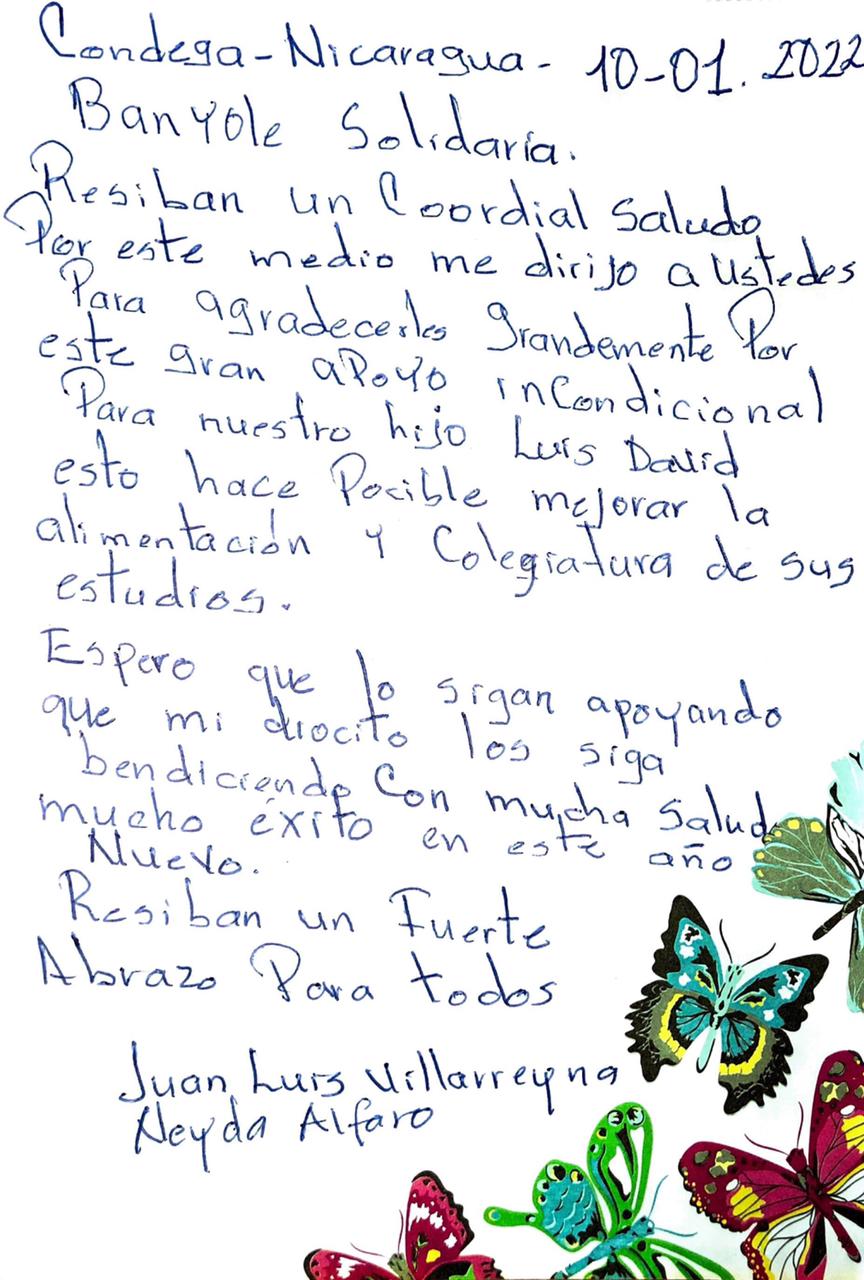 Condega-Nicaragua- 10-01. 2022
Banyole Solidaria.
Resiban un Coordial Saludo
Por este medio me dirijo a Ustedes
Para agradecerles grandemente Por
este gran apoyo incondicional
Para nuestro hijo Luis David
esto hace Pocible mejorar la
alimentación y Colegiatura de sus
estudios.
Espero que lo sigan apoyando
que mi diocito los siga
bendiciendo Con mucha Salud
mucho éxito en este año
Nuevo.
Resiban un Fuerte
Abrazo Para todos
Juan Luis Villarreyna
Neyda Alfaro